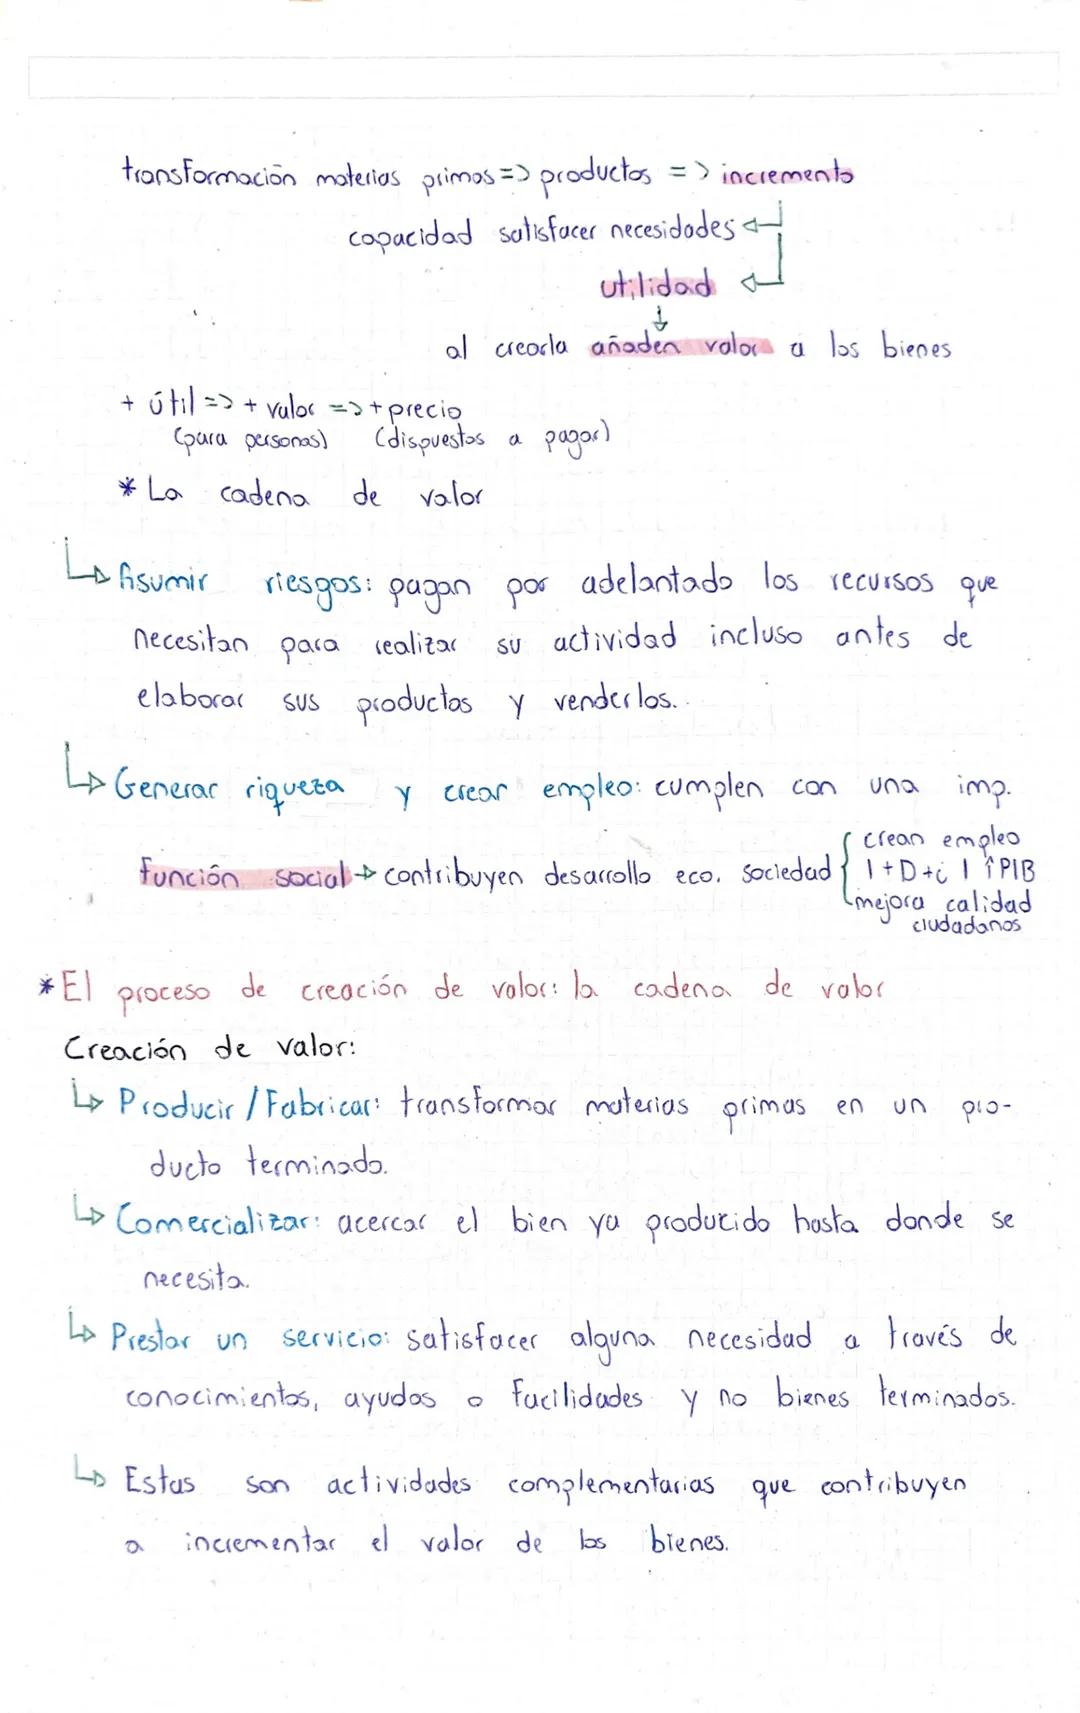 transformación materias primas => productos => incremento
capacidad satisfacer necesidades
utilidad
al crearla añaden valor a los bienes
+ útil => + valor => + precio
(para personas) (dispuestos a pagar)
* La cadena de valor
Asumir riesgos: pagan por adelantado los recursos que
necesitan para realizar su actividad incluso antes de
elaborar sus productos y venderlos.
Generar riqueza y crear empleo: cumplen con una imp.
función social → contribuyen desarrollo eco. sociedad { crean empleo
I+D+i | ↑PIB
mejora calidad
ciudadanos
* El proceso de creación de valor: la cadena de valor
Creación de valor:
↳ Producir / Fabricar: transformar materias primas en un pro-
ducto terminado.
↳ Comercializar: acercar el bien ya producido hasta donde se
necesita.
↳ Prestar un servicio: satisfacer alguna necesidad a través de
conocimientos, ayudas o facilidades y no bienes terminados.
↳ Estas son actividades complementarias que contribuyen
a incrementar el valor de los bienes.